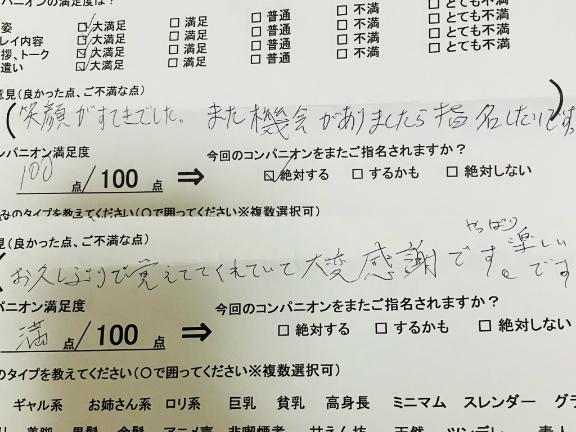 ンパニオンの満足度は？
姿 ☑大満足 □満足 □普通 □不満 □とても不満
レイ内容 ☑大満足 □満足 □普通 □不満 □とても不満
拶、トーク ☑大満足 □満足 □普通 □不満 □とても不満
遣い ☑大満足 □満足 □普通 □不満 □とても不満
意見（良かった点、ご不満な点）
（笑顔がすてきでした。また機会がありましたら指名したいです。）
ンパニオン満足度 今回のコンパニオンをまたご指名されますか？
100点/100点 ⇒ ☑絶対する □するかも □絶対しない
みのタイプを教えてください（〇で囲ってください※複数選択可）
見（良かった点、ご不満な点）
（お久しぶりで覚えててくれていて大変感謝です。やっぱり楽しいです
パニオン満足度 今回のコンパニオンをまたご指名されますか？
満点/100点 ⇒ □絶対する □するかも □絶対しない
のタイプを教えてください（〇で囲ってください※複数選択可）
ギャル系 お姉さん系 ロリ系 巨乳 貧乳 高身長 ミニマム スレンダー グラ
美脚 黒髪 金髪 アニメ声 非喫煙者 甘えん坊 天然 ツンデレ 素人